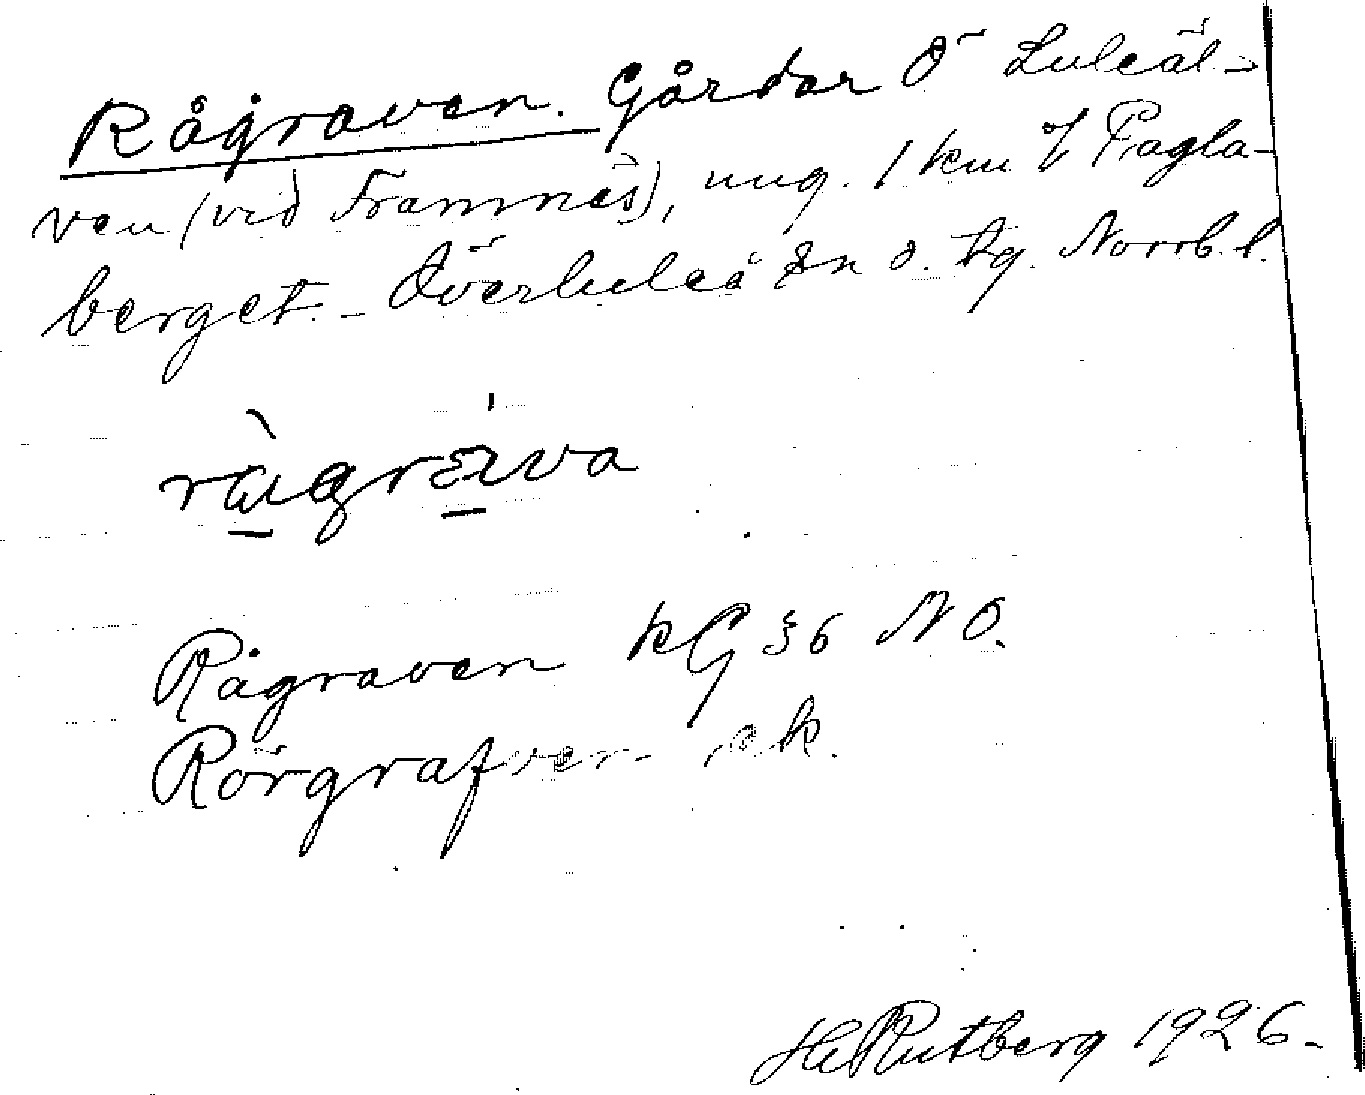 Rågraven. Gårdar Ö Luleäl-
ven (vid Framnäs), ung. 1 km V Fagla-
berget. - Överluleå sn o. tg. Norrb. l.
Rågraven kG §6 NO.
Rörgrafven ek.
H Rutberg 1926.